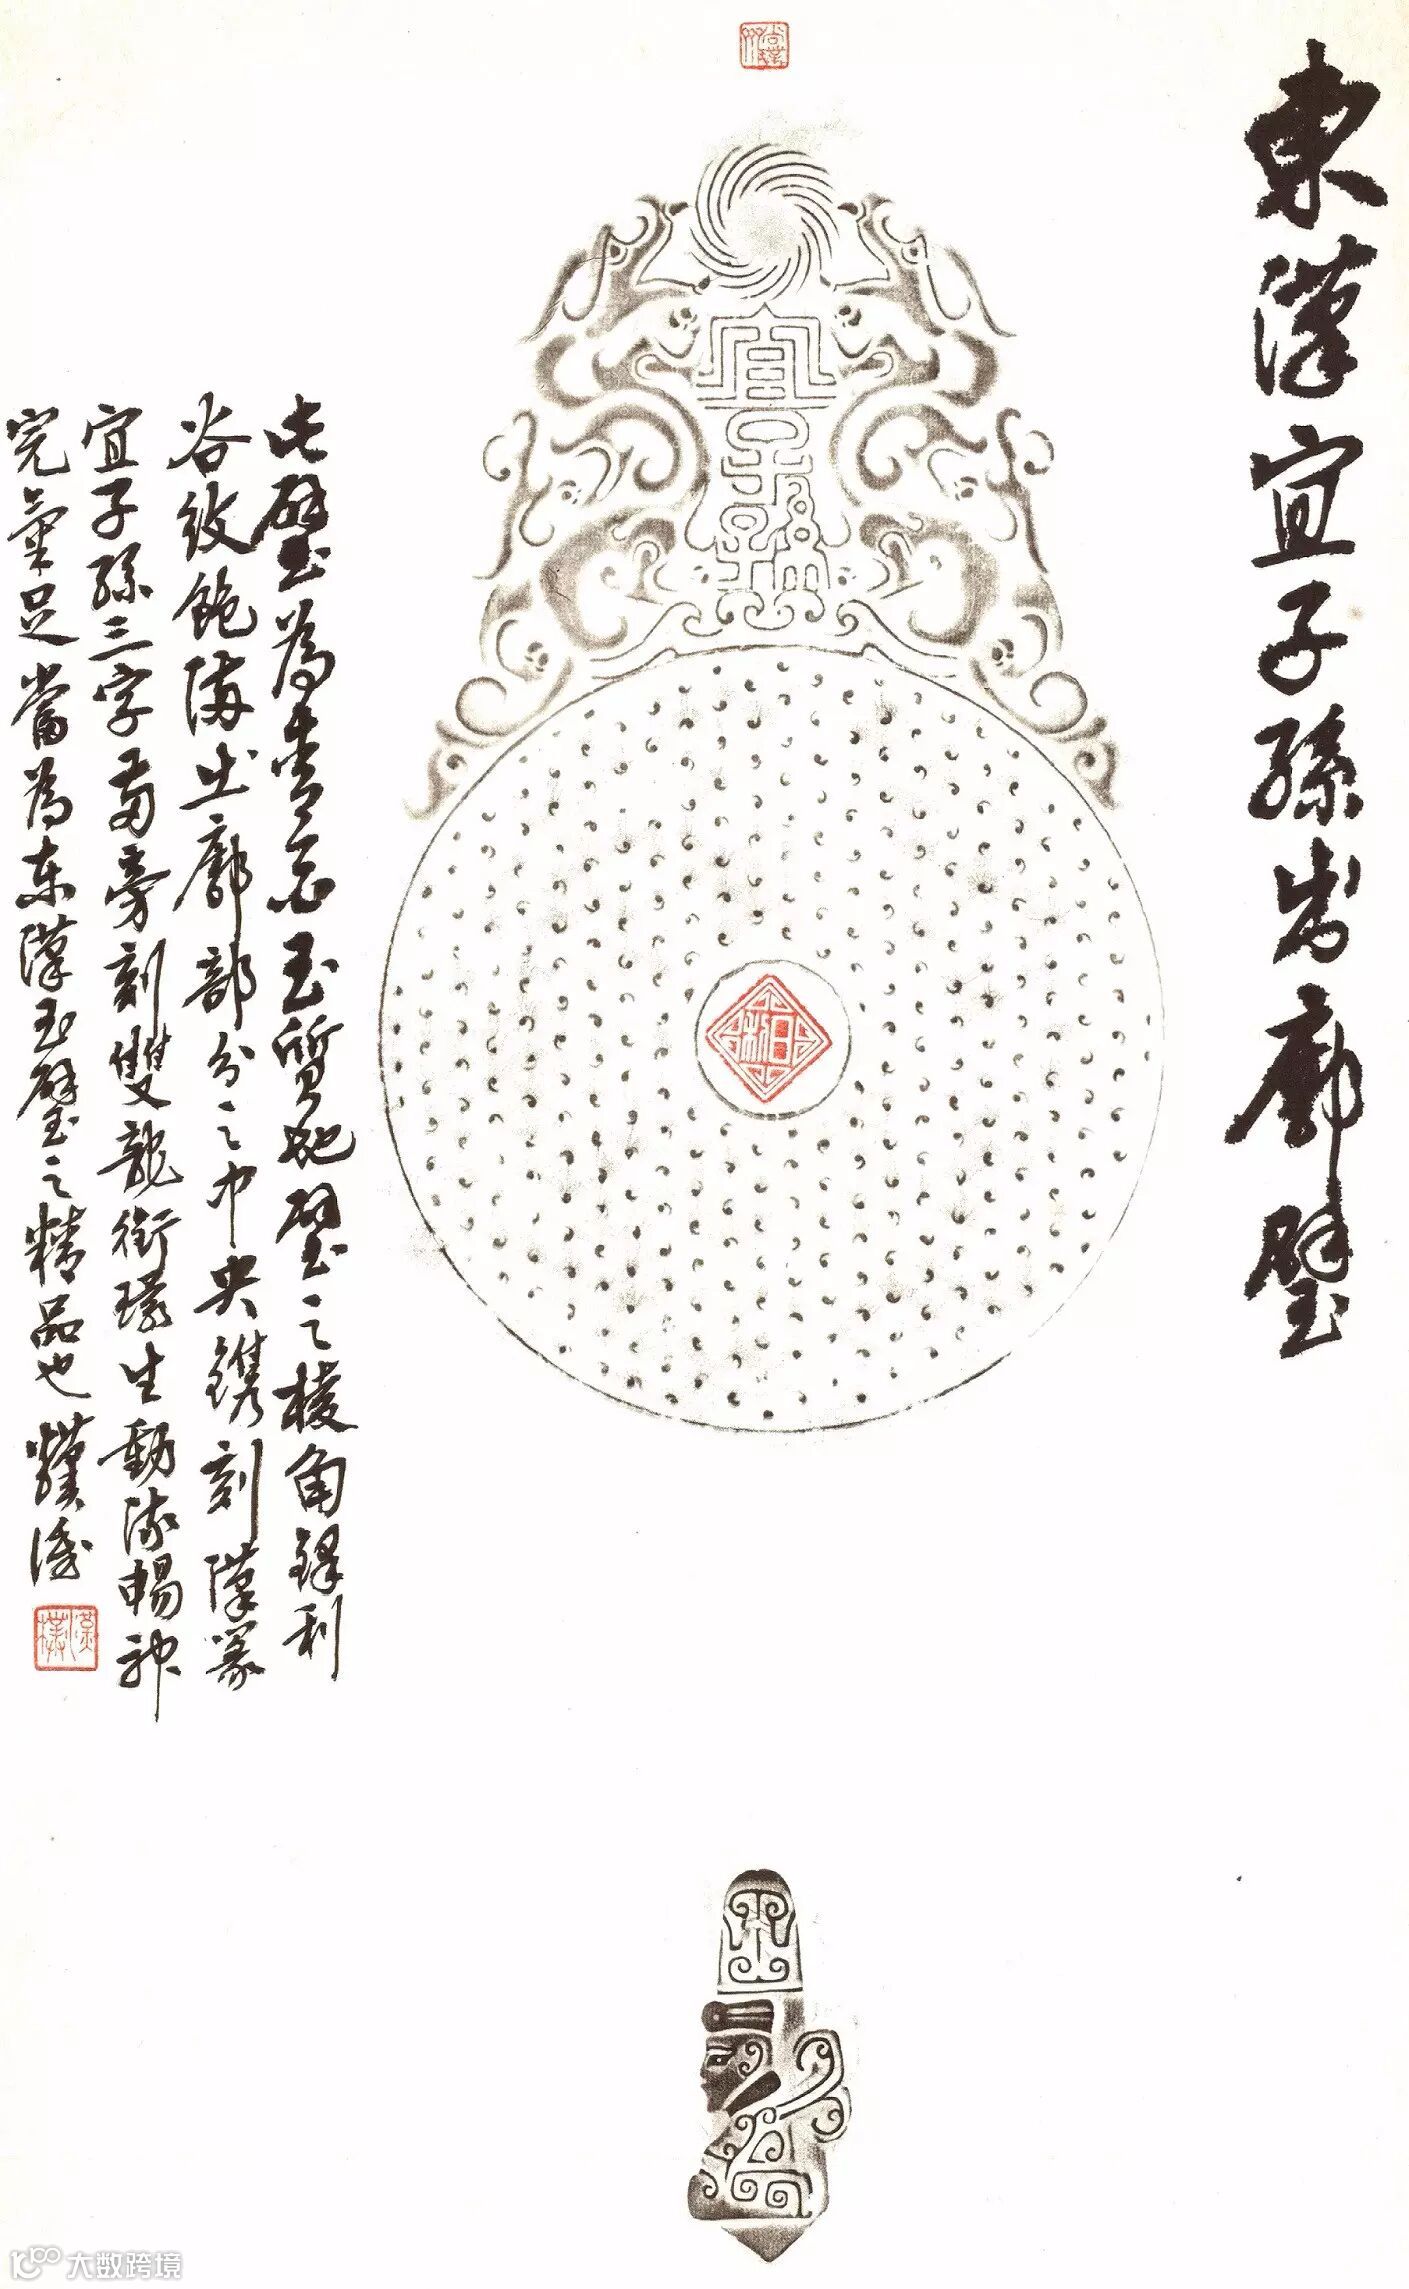 東漢宜子孫出廓璧
宜子孫
此璧為青白玉質地璧之棱角鋒利
谷纹飽滿出廓部分之中央鐫刻漢篆
宜子孫三字两旁刻雙龍銜環生動流暢神
完氣足當為东漢玉璧之精品也
漢
大数跨境